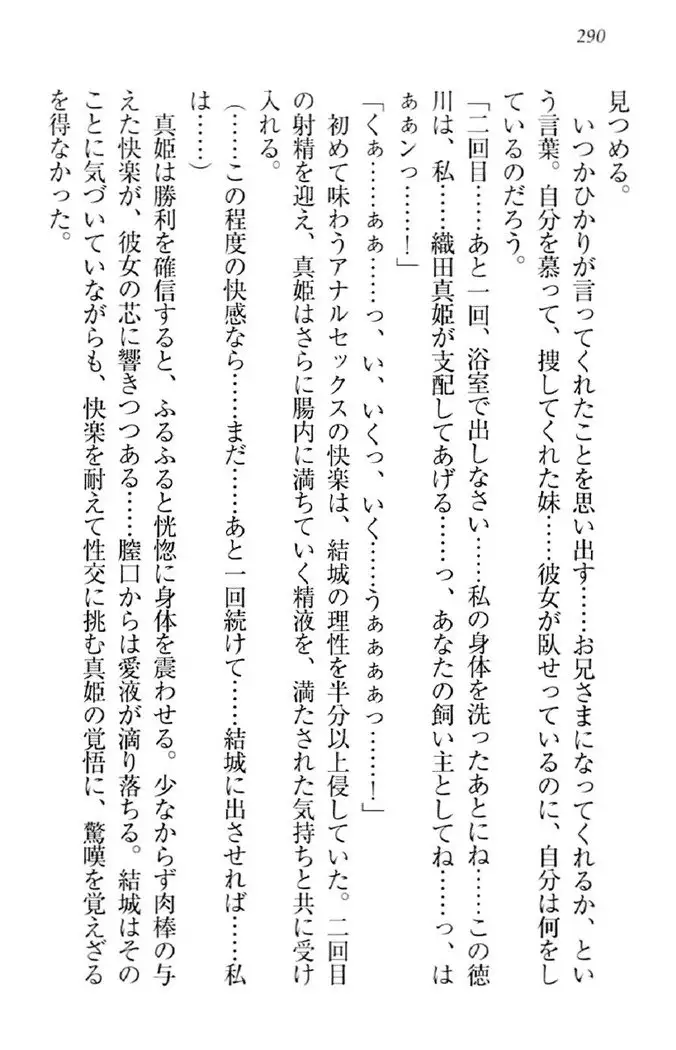 290
見つめる。
いつかひかりが言ってくれたことを思い出す……お兄さまになってくれるか、とい
う言葉。自分を慕って、捜してくれた妹……彼女が臥せっているのに、自分は何をし
ているのだろう。
「二回目……あと一回、浴室で出しなさい……私の身体を洗ったあとにね……この徳
川は、私……織田真姫が支配してあげる……っ、あなたの飼い主としてね……っ、は
ぁぁンっ……！」
「くぁ……ぁぁ……っ、い、いくっ、いく……うぁぁぁぁっ……！」
初めて味わうアナルセックスの快楽は、結城の理性を半分以上侵していた。二回目
の射精を迎え、真姫はさらに腸内に満ちていく精液を、満たされた気持ちと共に受け
入れる。
（……この程度の快感なら……まだ……あと一回続けて……結城に出させれば……私
は……）
真姫は勝利を確信すると、ふるふると恍惚に身体を震わせる。少なからず肉棒の与
えた快楽が、彼女の芯に響きつつある……膣口からは愛液が滴り落ちる。結城はその
ことに気づいていながらも、快楽を耐えて性交に挑む真姫の覚悟に、驚嘆を覚えざる
を得なかった。